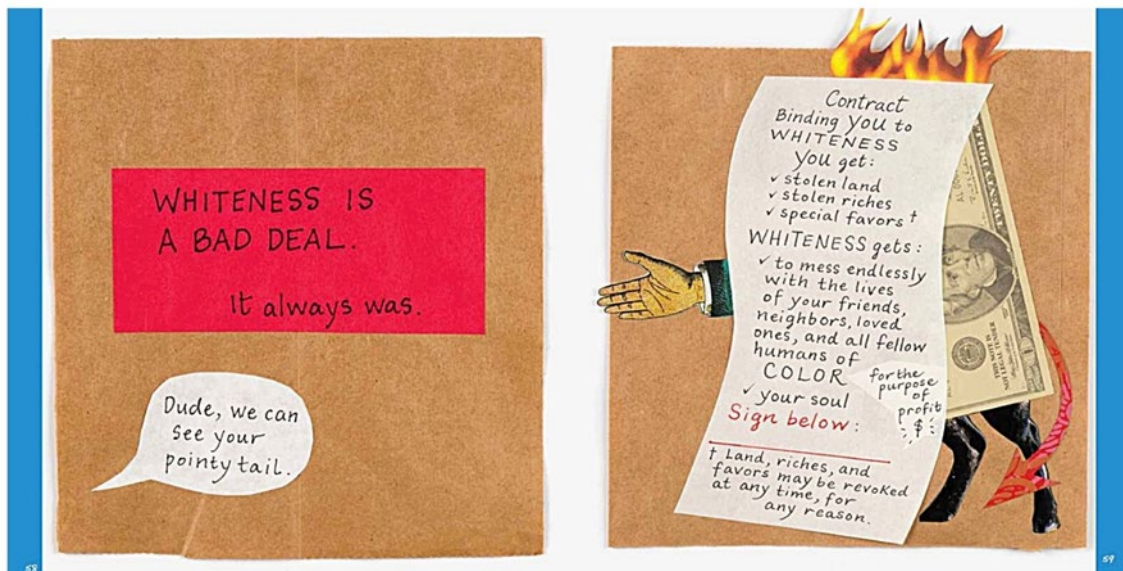 WHITENESS IS
A BAD DEAL.
It always was.
Dude, we can
see your
pointy tail.
58
Contract
Binding YOU to
WHITENESS
You get:
✓ stolen land
✓ stolen riches
✓ special favors †
WHITENESS gets:
✓ to mess endlessly
with the lives
of your friends,
neighbors, loved
ones, and all fellow
humans of
COLOR
for the
purpose
of
profit
$
✓ your soul
Sign below:
† Land, riches, and
favors may be revoked
at any time, for
any reason.
THIS NOTE IS
NOT LEGAL TENDER
59